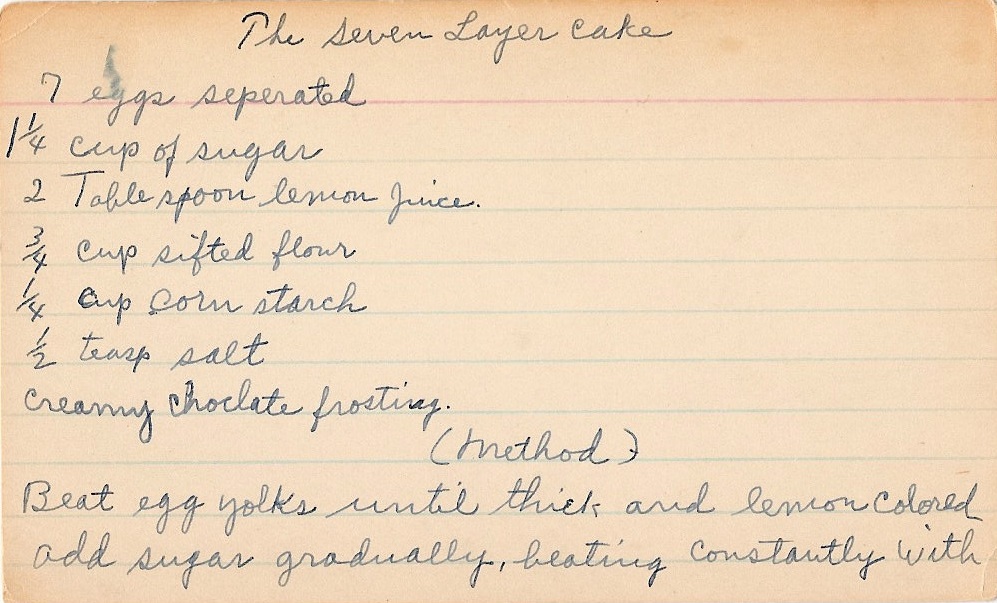 The Seven Layer Cake
7 eggs seperated
1 1/4 cup of sugar
2 Table spoon lemon juice.
3/4 cup sifted flour
1/4 cup corn starch
1/2 teasp salt
Creamy choclate frosting.
(Method)
Beat egg yolks until thick and lemon colored
add sugar gradually, beating constantly with